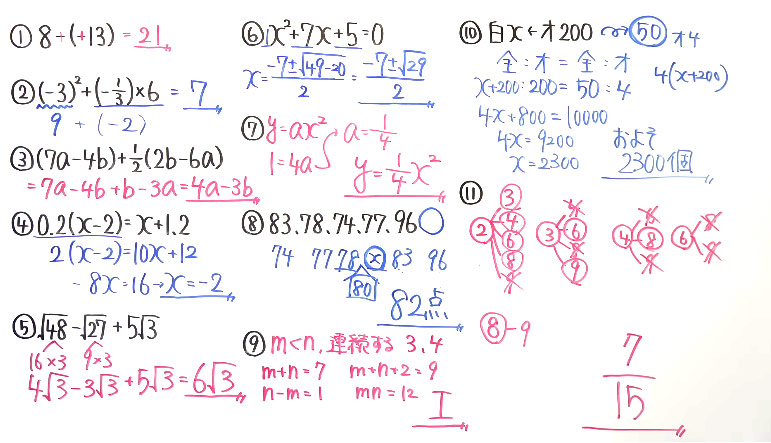 ① 8÷(+13) = 21
② (-3)²+(-1/3)×6 = 7
9 + (-2)
③ (7a-4b)+1/2(2b-6a)
=7a-4b+b-3a=4a-3b
④ 0.2(x-2)=x+1.2
2(x-2)=10x+12
-8x=16→x=-2
⑤ √48-√27+5√3
16×3 9×3
4√3-3√3+5√3=6√3
⑥ 1x²+7x+5=0
x=(-7±√49-20)/2=(-7±√29)/2
⑦ y=ax² a=1/4
1=4a
y=1/4x²
⑧ 83.78.74.77.96○
74 77 78 x 83 96
80
82点
⑨ m<n.連続する 3.4
m+n=7 m+n+2=9
n-m=1 mn=12
エ
⑩ 白x←オ200 50 オ4
全:オ=全:オ
4(x+200)
x+200:200=50:4
4x+800=10000
4x=9200
x=2300
およそ
2300個
⑪
3
2 4
6
8
3 6
9
4 8
6
8-9
7/15